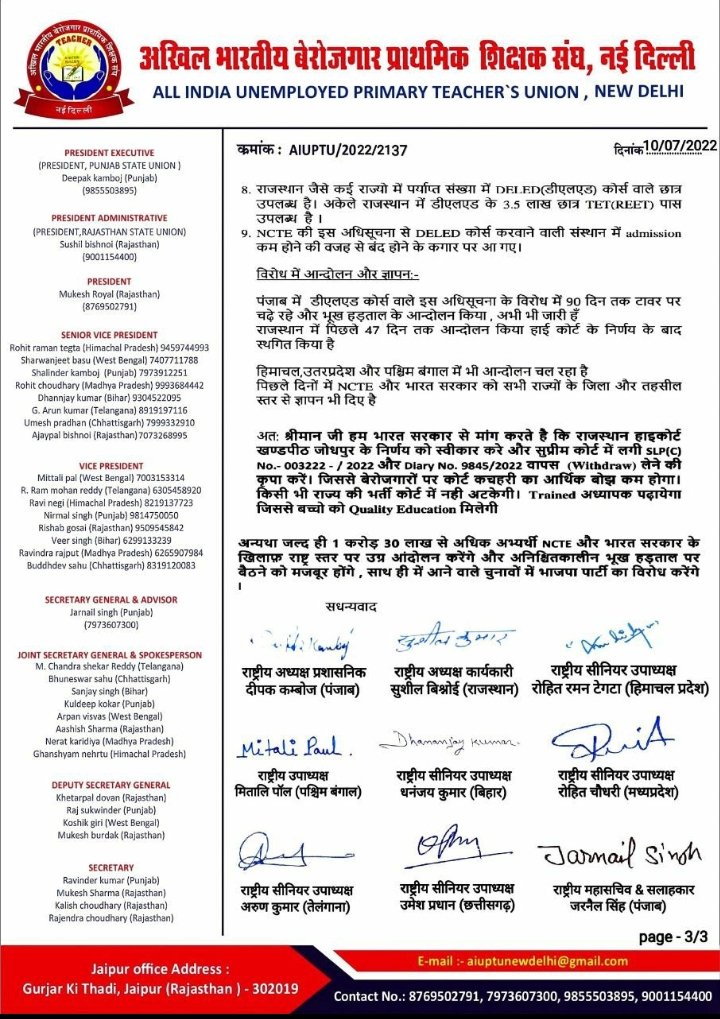 अखिल भारतीय बेरोजगार प्राथमिक शिक्षक संघ, नई दिल्ली
ALL INDIA UNEMPLOYED PRIMARY TEACHER`S UNION , NEW DELHI
अखिल भारतीय बेरोजगार प्राथमिक शिक्षक संघ
TEACHER
नई दिल्ली
PRESIDENT EXECUTIVE
(PRESIDENT, PUNJAB STATE UNION )
Deepak kamboj (Punjab)
(9855503895)
PRESIDENT ADMINISTRATIVE
(PRESIDENT,RAJASTHAN STATE UNION)
Sushil bishnoi (Rajasthan)
(9001154400)
PRESIDENT
Mukesh Royal (Rajasthan)
(8769502791)
SENIOR VICE PRESIDENT
Rohit raman tegta (Himachal Pradesh) 9459744993
Sharwanjeet basu (West Bengal) 7407711788
Shalinder kamboj (Punjab) 7973912251
Rohit choudhary (Madhya Pradesh) 9993684442
Dhannjay kumar (Bihar) 9304522095
G. Arun kumar (Telangana) 8919197116
Umesh pradhan (Chhattisgarh) 7999332910
Ajaypal bishnoi (Rajasthan) 7073268995
VICE PRESIDENT
Mittali pal (West Bengal) 7003153314
R. Ram mohan reddy (Telangana) 6305458920
Ravi negi (Himachal Pradesh) 8219137723
Nirmal singh (Punjab) 9814750050
Rishab gosai (Rajasthan) 9509545842
Veer singh (Bihar) 6299133239
Ravindra rajput (Madhya Pradesh) 6265907984
Buddhdev sahu (Chhattisgarh) 8319120083
SECRETARY GENERAL & ADVISOR
Jarnail singh (Punjab)
(7973607300)
JOINT SECRETARY GENERAL & SPOKESPERSON
M. Chandra shekar Reddy (Telangana)
Bhuneswar sahu (Chhattisgarh)
Sanjay singh (Bihar)
Kuldeep kokar (Punjab)
Arpan visvas (West Bengal)
Aashish Sharma (Rajasthan)
Nerat karidiya (Madhya Pradesh)
Ghanshyam nehrtu (Himachal Pradesh)
DEPUTY SECRETARY GENERAL
Khetarpal dovan (Rajasthan)
Raj sukwinder (Punjab)
Koshik giri (West Bengal)
Mukesh burdak (Rajasthan)
SECRETARY
Ravinder kumar (Punjab)
Mukesh Sharma (Rajasthan)
Kalish choudhary (Rajasthan)
Rajendra choudhary (Rajasthan)
कमांक : AIUPTU/2022/2137
दिनांक 10/07/2022
8. राजस्थान जैसे कई राज्यो में पर्याप्त संख्या में DELED(डीएलएड) कोर्स वाले छात्र
उपलब्ध है। अकेले राजस्थान में डीएलएड के 3.5 लाख छात्र TET(REET) पास
उपलब्ध है ।
9. NCTE की इस अधिसूचना से DELED कोर्स करवाने वाली संस्थान में admission
कम होने की वजह से बंद होने के कगार पर आ गए।
विरोध में आन्दोलन और ज्ञापन:-
पंजाब में डीएलएड कोर्स वाले इस अधिसूचना के विरोध में 90 दिन तक टावर पर
चढ़े रहे और भूख हड़ताल के आन्दोलन किया , अभी भी जारी हूँ
राजस्थान में पिछले 47 दिन तक आन्दोलन किया हाई कोर्ट के निर्णय के बाद
स्थगित किया है
हिमाचल,उतरप्रदेश और पश्चिम बंगाल में भी आन्दोलन चल रहा है
पिछले दिनों में NCTE और भारत सरकार को सभी राज्यों के जिला और तहसील
स्तर से ज्ञापन भी दिए है
अत: श्रीमान जी हम भारत सरकार से मांग करते है कि राजस्थान हाइकोर्ट
खण्डपीठ जोधपुर के निर्णय को स्वीकार करे और सुप्रीम कोर्ट में लगी SLP(C)
No.- 003222 - / 2022 और Diary No. 9845/2022 वापस (Withdraw) लेने की
कृपा करें। जिससे बेरोजगारों पर कोर्ट कचहरी का आर्थिक बोझ कम होगा।
किसी भी राज्य की भर्ती कोर्ट में नही अटकेगी। Trained अध्यापक पढ़ायेगा
जिससे बच्चो को Quality Education मिलेगी
अन्यथा जल्द ही 1 करोड़ 30 लाख से अधिक अभ्यर्थी NCTE और भारत सरकार के
खिलाफ़ राष्ट्र स्तर पर उग्र आंदोलन करेंगे और अनिश्चितकालीन भूख हड़ताल पर
बैठने को मजबूर होंगे , साथ ही में आने वाले चुनावों में भाजपा पार्टी का विरोध करेंगे
।
सधन्यवाद
राष्ट्रीय अध्यक्ष प्रशासनिक
दीपक कम्बोज (पंजाब)
राष्ट्रीय अध्यक्ष कार्यकारी
सुशील बिश्नोई (राजस्थान)
राष्ट्रीय सीनियर उपाध्यक्ष
रोहित रमन टेगटा (हिमाचल प्रदेश)
Mitali Paul.
राष्ट्रीय उपाध्यक्ष
मितालि पॉल (पश्चिम बंगाल)
Dhananjay Kumar.
राष्ट्रीय सीनियर उपाध्यक्ष
धनंजय कुमार (बिहार)
राष्ट्रीय सीनियर उपाध्यक्ष
रोहित चौधरी (मध्यप्रदेश)
राष्ट्रीय सीनियर उपाध्यक्ष
अरुण कुमार (तेलंगाना)
राष्ट्रीय सीनियर उपाध्यक्ष
उमेश प्रधान (छत्तीसगढ़)
Jarnail Singh
राष्ट्रीय महासचिव & सलाहकार
जरनैल सिंह (पंजाब)
page - 3/3
Jaipur office Address :
Gurjar Ki Thadi, Jaipur (Rajasthan ) - 302019
E-mail :- aiuptunewdelhi@gmail.com
Contact No.: 8769502791, 7973607300, 9855503895, 9001154400